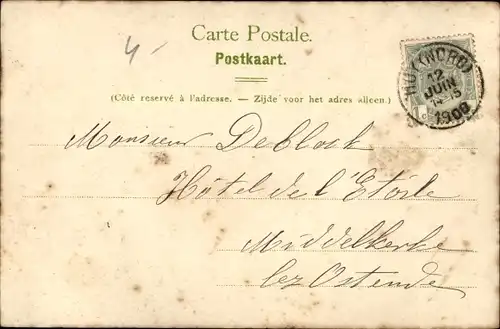 4-
Carte Postale.
Postkaart.
(Côté reservé à l'adresse. — Zijde voor het adres alleen.)
HUY (NORD)
12
JUIN
1900
Monsieur Deblock
Hôtel de l'Etoile
Middelkerke
lez Ostende